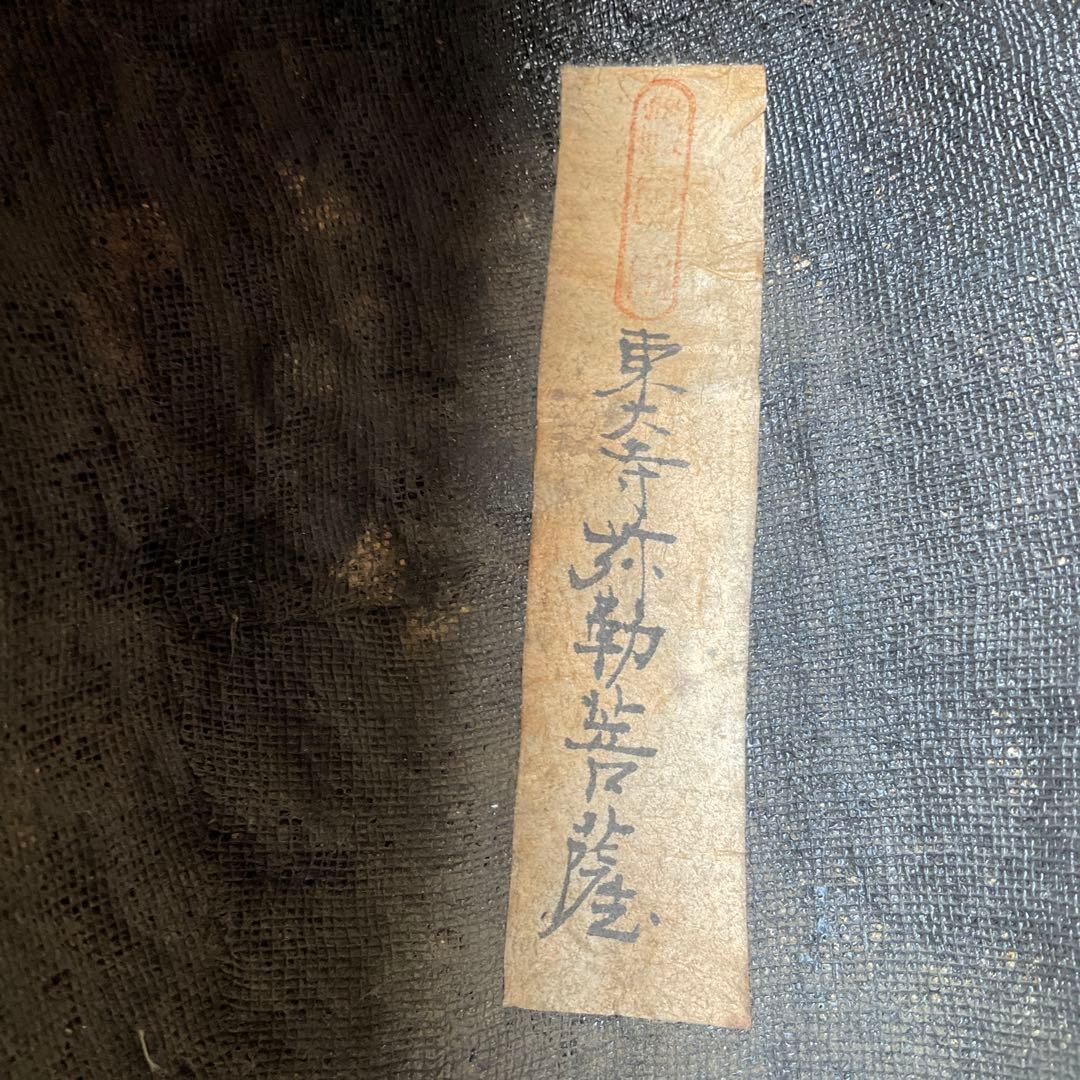 東大寺弥勒菩薩